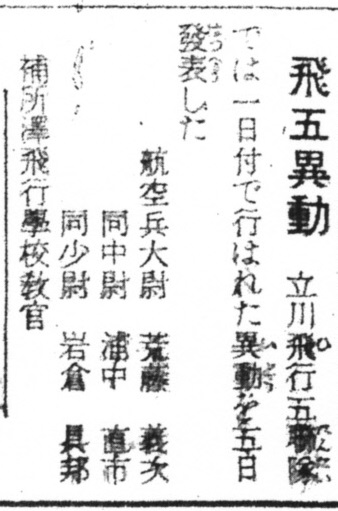 飛五異動 立川飛行五聯隊
では一日付で行はれた異動を五日
發表した
航空兵大尉 荒藤 義次
同中尉 浦中 直市
同少尉 岩倉 具邦
補所澤飛行學校教官